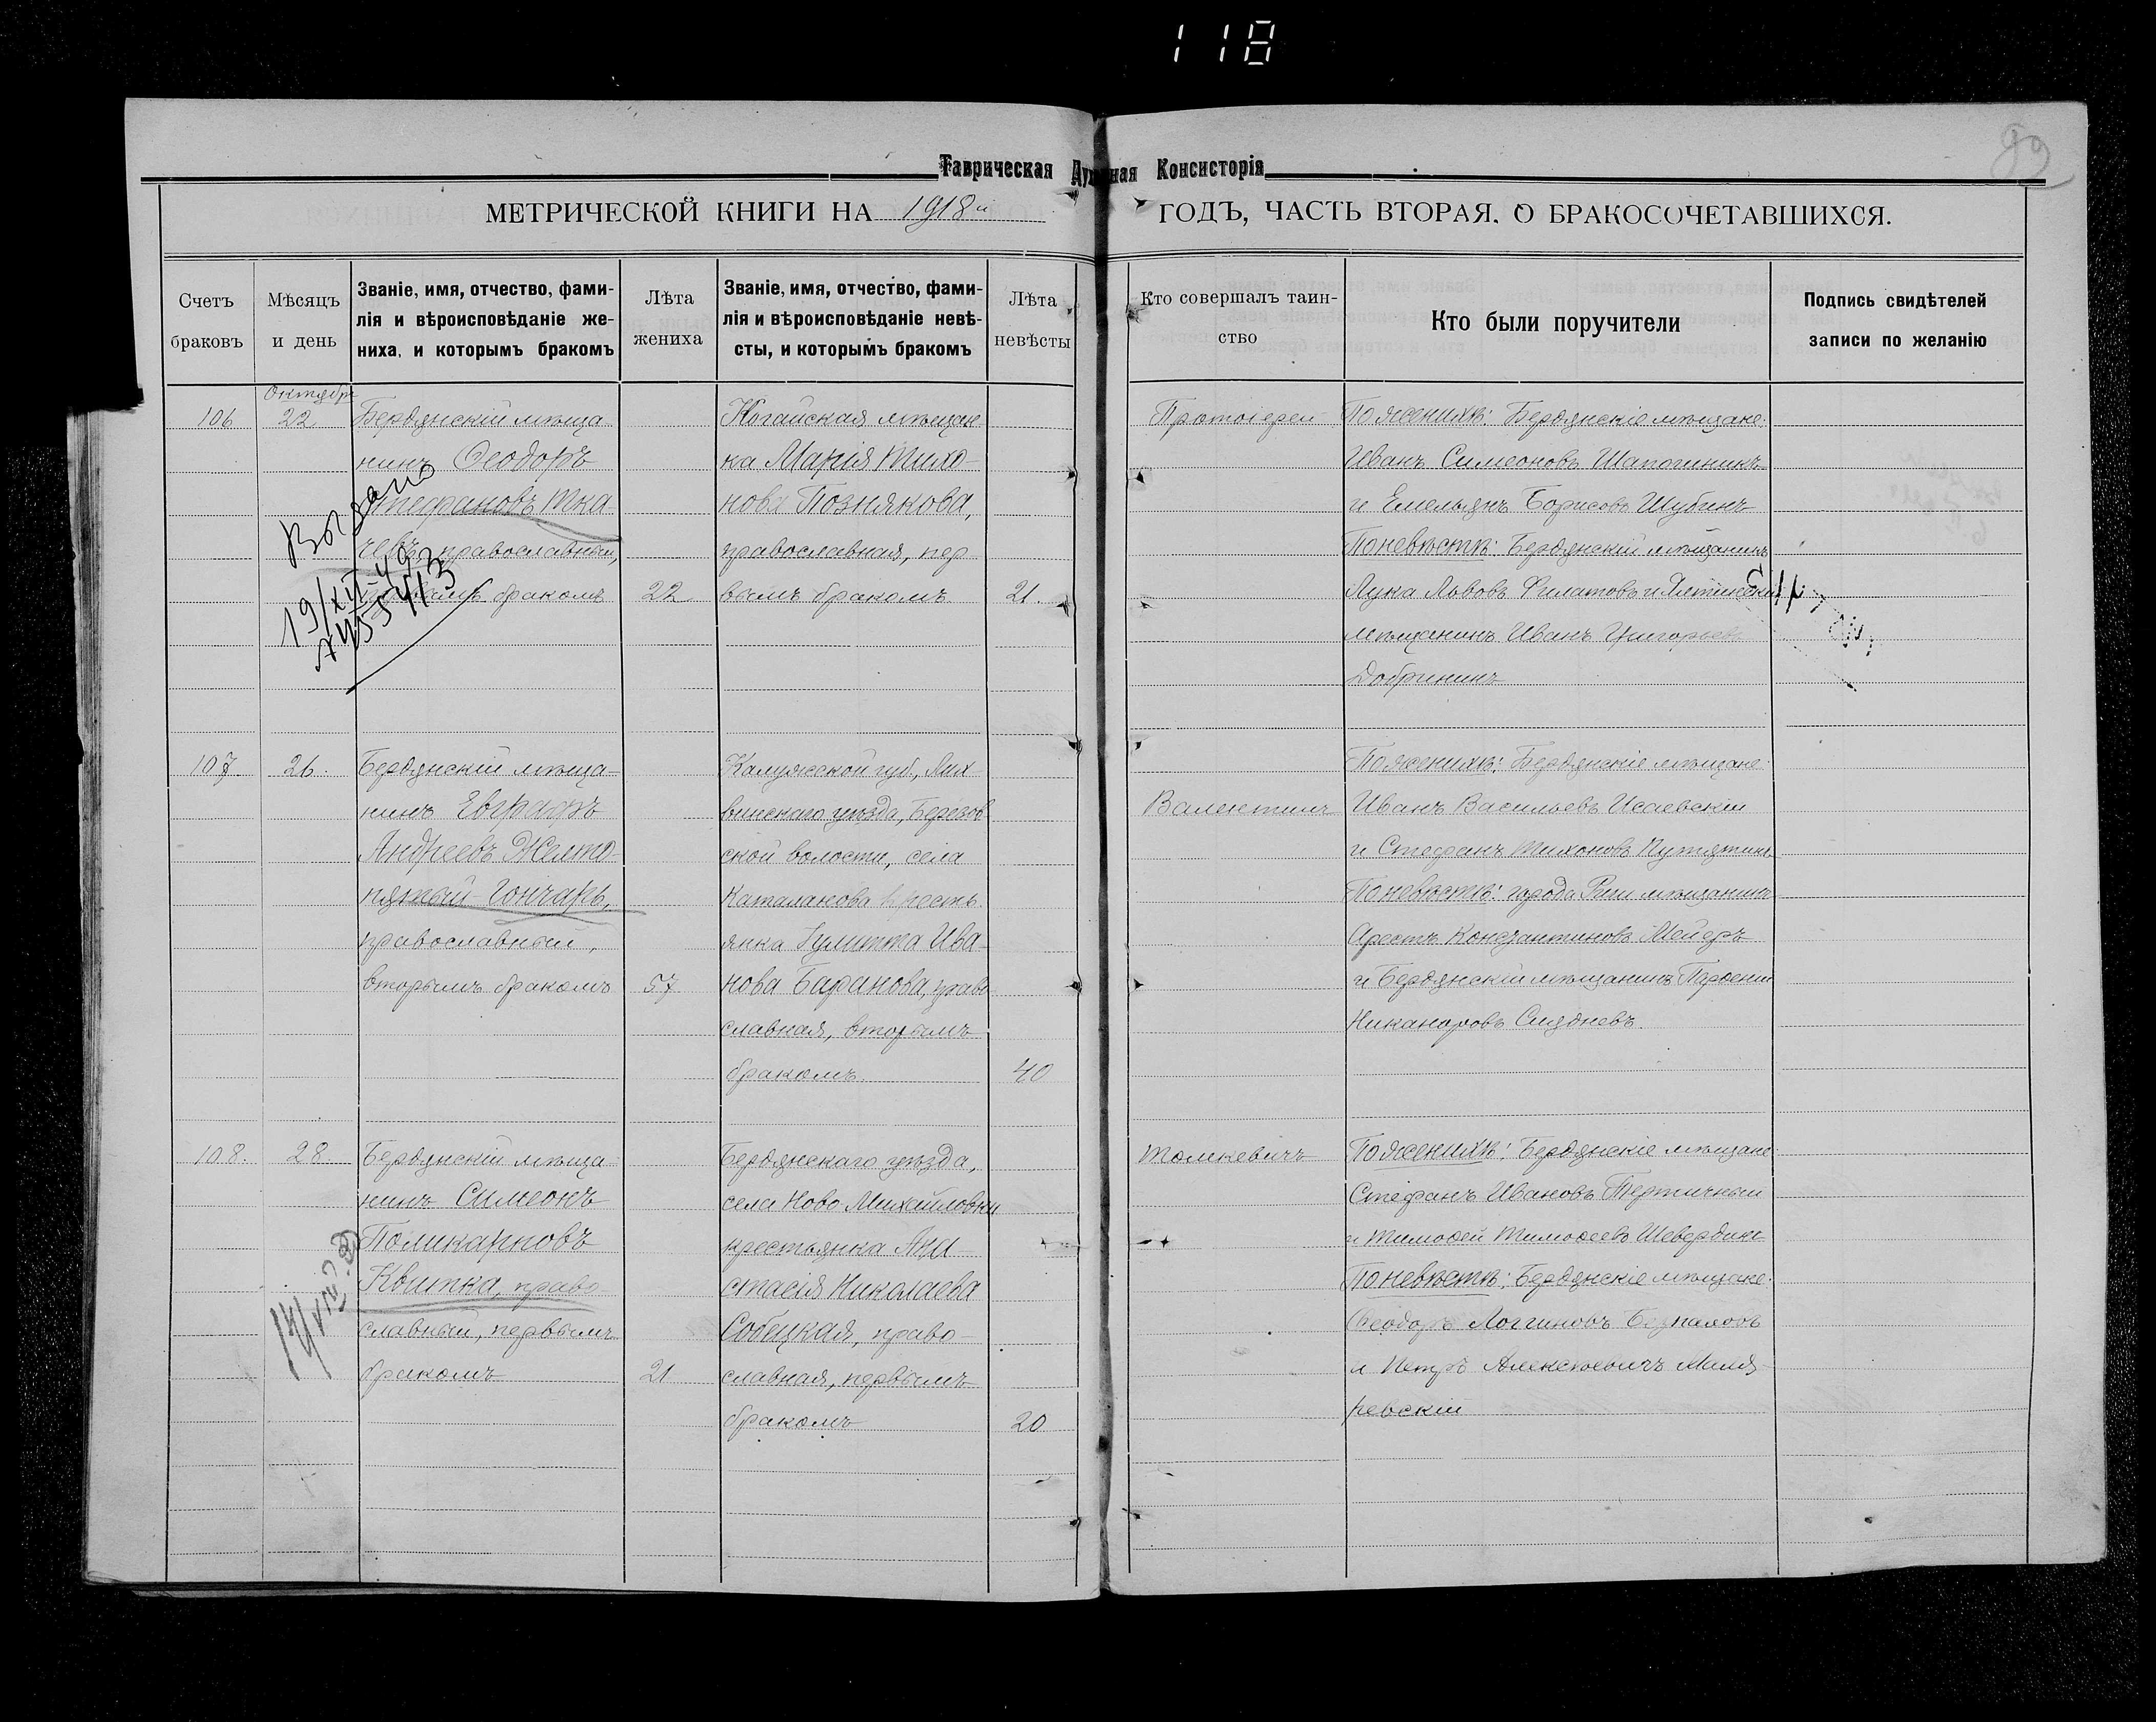 118
92
Таврическая Духовная Консисторія
МЕТРИЧЕСКОЙ КНИГИ НА 1918 й ГОДЪ, ЧАСТЬ ВТОРАЯ, О БРАКОСОЧЕТАВШИХСЯ.
Счетъ
браковъ
Мѣсяцъ
и день
Званіе, имя, отчество, фами-
лія и вѣроисповѣданіе же-
ниха, и которымъ бракомъ
Лѣта
жениха
Званіе, имя, отчество, фами-
лія и вѣроисповѣданіе невѣ-
сты, и которымъ бракомъ
Лѣта
невѣсты
Кто совершалъ таин-
ство
Кто были поручители
Подпись свидѣтелей
записи по желанію
106
Октября
22
Бердянскій мѣща-
нинъ Ѳеодоръ
Стефановъ Тка-
чевъ, православный,
первымъ бракомъ
22
Ногайская мѣщан-
ка Марія Тихо-
нова Познякова,
православная, пер-
вымъ бракомъ
21.
Протоіерей
По женихѣ: Бердянскіе мѣщане:
Иванъ Симеоновъ
и Емельянъ Борисовъ Шубинъ
По невѣстѣ: Бердянскій мѣщанинъ
Лука Львовъ Филатовъ и
мѣщанинъ Иванъ Григорьевъ
Добрининъ
Выдано
19/XII-49
107
26.
Бердянскій мѣща-
нинъ Евграфъ
Андреевъ Желто-
пятый-Гончаръ,
православный,
вторымъ бракомъ
57
Калужской губ., Лих-
винскаго уѣзда, Березов-
ской волости, села
кресть-
янка Іулитта Ива-
нова Баранова, право-
славная, вторымъ
бракомъ.
40
Валентинъ
По женихѣ: Бердянскіе мѣщане:
Иванъ Васильевъ Исаевскій
и Стефанъ Тихоновъ Путятинъ.
По невѣстѣ: города Риги мѣщанинъ
Константиновъ Мейеръ
и Бердянскій мѣщанинъ Парѳеній
Никаноровъ
108.
28
Бердянскій мѣща-
нинъ Симеонъ
Поликарповъ
Квитка, право-
славный, первымъ
бракомъ
21
Бердянскаго уѣзда,
села Ново-Михайловки
крестьянка Ана-
стасія Николаева
Собецкая, право-
славная, первымъ
бракомъ
20
Толмкевичъ
По женихѣ: Бердянскіе мѣщане:
Стефанъ Ивановъ
и Тимоѳей Тимоѳеевъ Шевердинъ
По невѣстѣ: Бердянскіе мѣщане:
Ѳеодоръ Логгиновъ
и Петръ Алексѣевичъ Миля-
ревскій